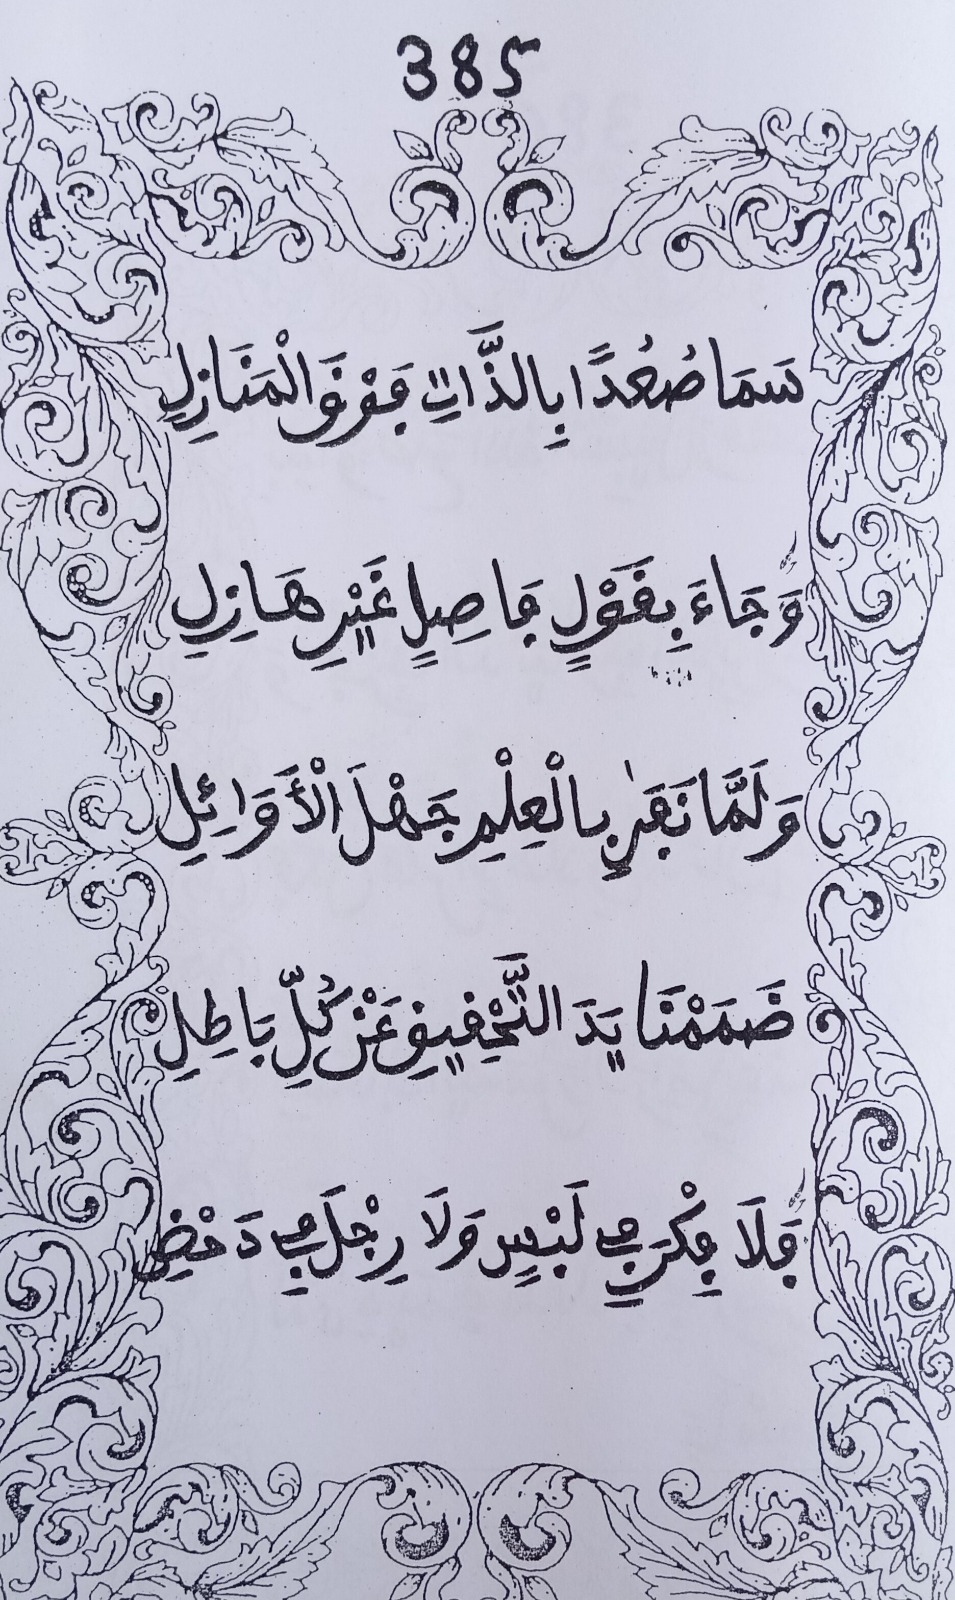 385
سَمَا صُعُدًا بِالذَّاتِ فَوْقَ الْمَنَازِلِ
وَجَاءَ بِقَوْلٍ فَاصِلٍ غَيْرِ هَازِلِ
وَلَمَّا نَفَىٰ بِالْعِلْمِ جَهْلَ الْأَوَائِلِ
ضَمَمْنَا يَدَ التَّخْفِيفِ عَنْ كُلِّ بَاطِلِ
فَلَا فِكْرَ فِي لَبْسٍ وَلَا رِجْلَ فِي دَحْضِ